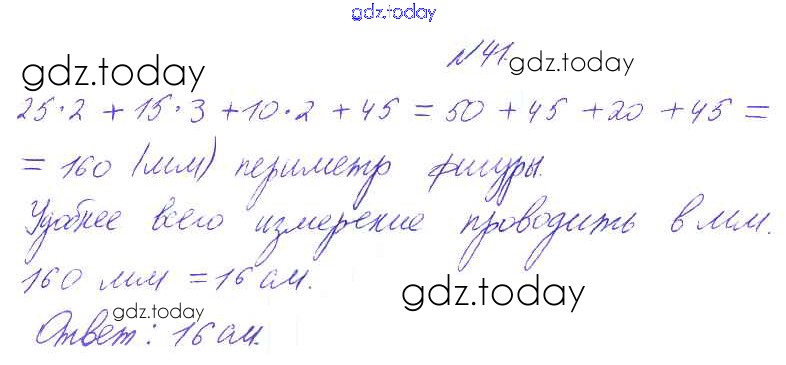 gdz.today
№41.
gdz.today
gdz.today
25·2 + 15·3 + 10·2 + 45 = 50 + 45 + 20 + 45 =
= 160 (мм) периметр фигуры.
Удобнее всего измерение проводить в мм.
160 мм = 16 см.
gdz.today
gdz.today
Ответ: 16 см.